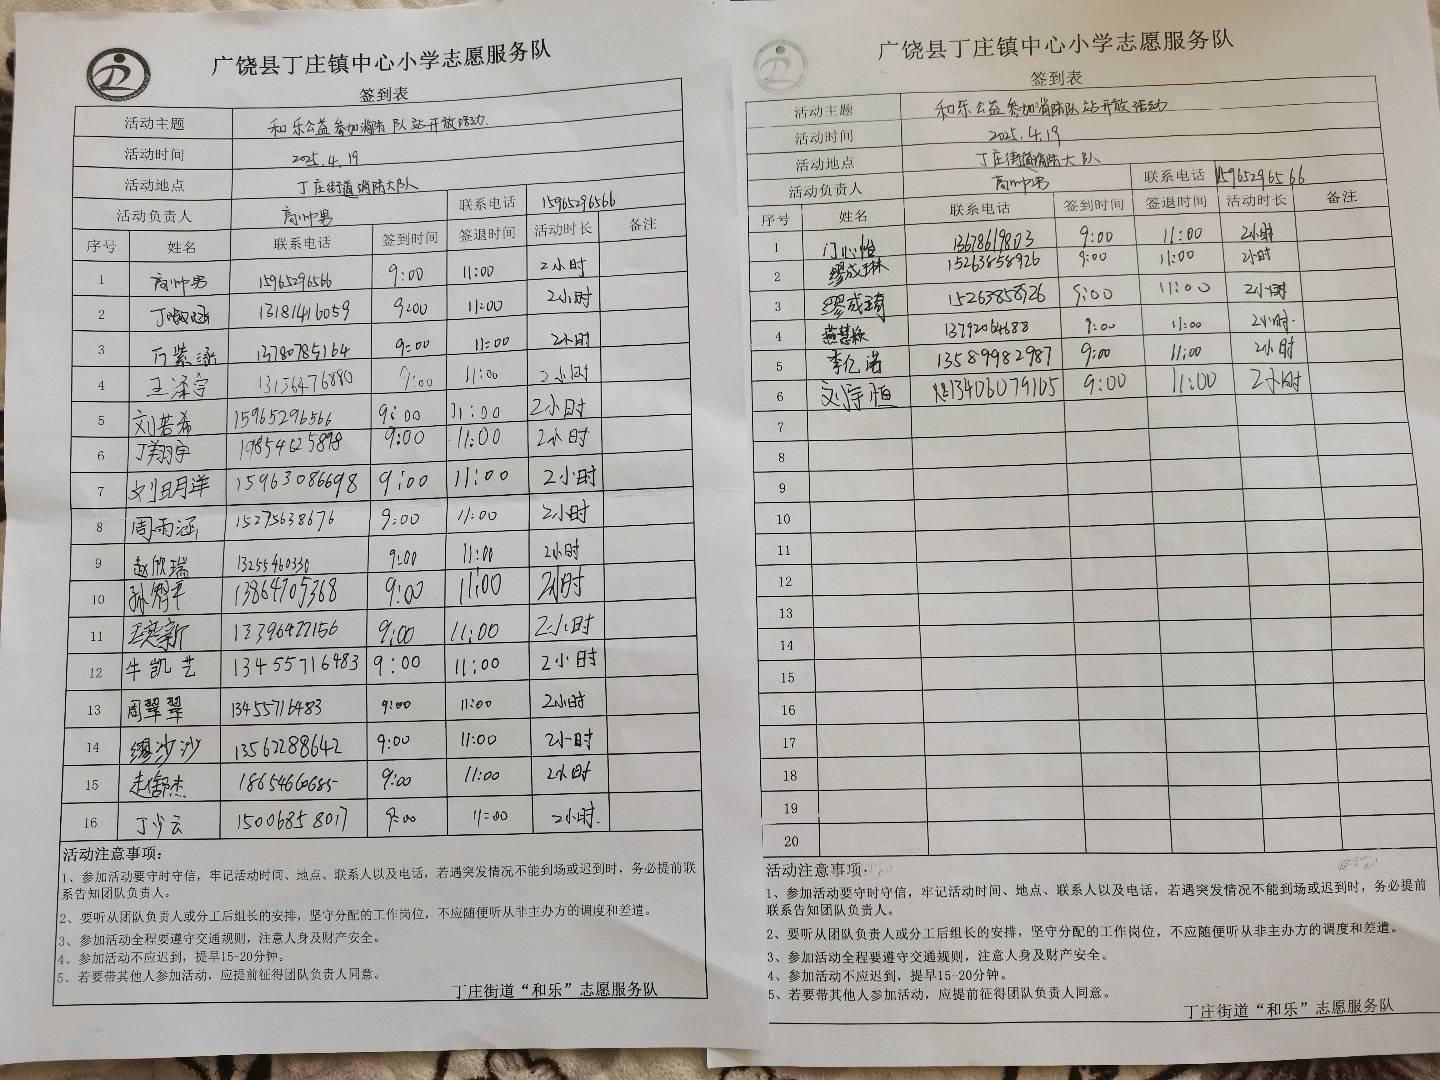 广饶县丁庄镇中心小学志愿服务队
签到表
活动主题 和乐公益参加消防队站开放活动.
活动时间 2025.4.19
活动地点 丁庄街道消防大队
活动负责人 高帅男 联系电话 15965296566
序号 姓名 联系电话 签到时间 签退时间 活动时长 备注
1 高帅男 15965296566 9:00 11:00 2小时
2 13181416059 9:00 11:00 2小时
3 13780785164 9:00 11:00 2小时
4 王泽宇 13156476890 9:00 11:00 2小时
5 刘若希 15965296566 9:00 11:00 2小时
6 丁翔宇 19854625898 9:00 11:00 2小时
7 15963086698 9:00 11:00 2小时
8 周雨涵 15275638676 9:00 11:00 2小时
9 赵欣瑞 13255460330 9:00 11:00 2小时
10 13864705368 9:00 11:00 2小时
11 13396422156 9:00 11:00 2小时
12 牛凯艺 13455716483 9:00 11:00 2小时
13 周翠翠 13455716483 9:00 11:00 2小时
14 缪沙沙 13562288642 9:00 11:00 2小时
15 18654660685 9:00 11:00 2小时
16 丁少云 15006858017 9:00 11:00 2小时.
活动注意事项：
1、参加活动要守时守信，牢记活动时间、地点、联系人以及电话，若遇突发情况不能到场或迟到时，务必提前联
系告知团队负责人。
2、要听从团队负责人或分工后组长的安排，坚守分配的工作岗位，不应随便听从非主办方的调度和差遣。
3、参加活动全程要遵守交通规则，注意人身及财产安全。
4、参加活动不应迟到，提早15-20分钟。
5、若要带其他人参加活动，应提前征得团队负责人同意。
丁庄街道“和乐”志愿服务队
广饶县丁庄镇中心小学志愿服务队
签到表
活动主题 和乐公益参加消防队站开放活动
活动时间 2025.4.19
活动地点 丁庄街道消防大队
活动负责人 高帅男 联系电话 15965296566
序号 姓名 联系电话 签到时间 签退时间 活动时长 备注
1 门心怡 13678619803 9:00 11:00 2小时
2 缪成琳 15263858926 9:00 11:00 2小时
3 缪成琦 15263858926 9:00 11:00 2小时
4 13792064688 9:00 11:00 2小时.
5 李亿诺 13589982987 9:00 11:00 2小时
6 刘宇恒 13406079105 9:00 11:00 2小时
7
8
9
10
11
12
13
14
15
16
17
18
19
20
活动注意事项：
1、参加活动要守时守信，牢记活动时间、地点、联系人以及电话，若遇突发情况不能到场或迟到时，务必提前
联系告知团队负责人。
2、要听从团队负责人或分工后组长的安排，坚守分配的工作岗位，不应随便听从非主办方的调度和差遣。
3、参加活动全程要遵守交通规则，注意人身及财产安全。
4、参加活动不应迟到，提早15-20分钟。
5、若要带其他人参加活动，应提前征得团队负责人同意。
丁庄街道“和乐”志愿服务队